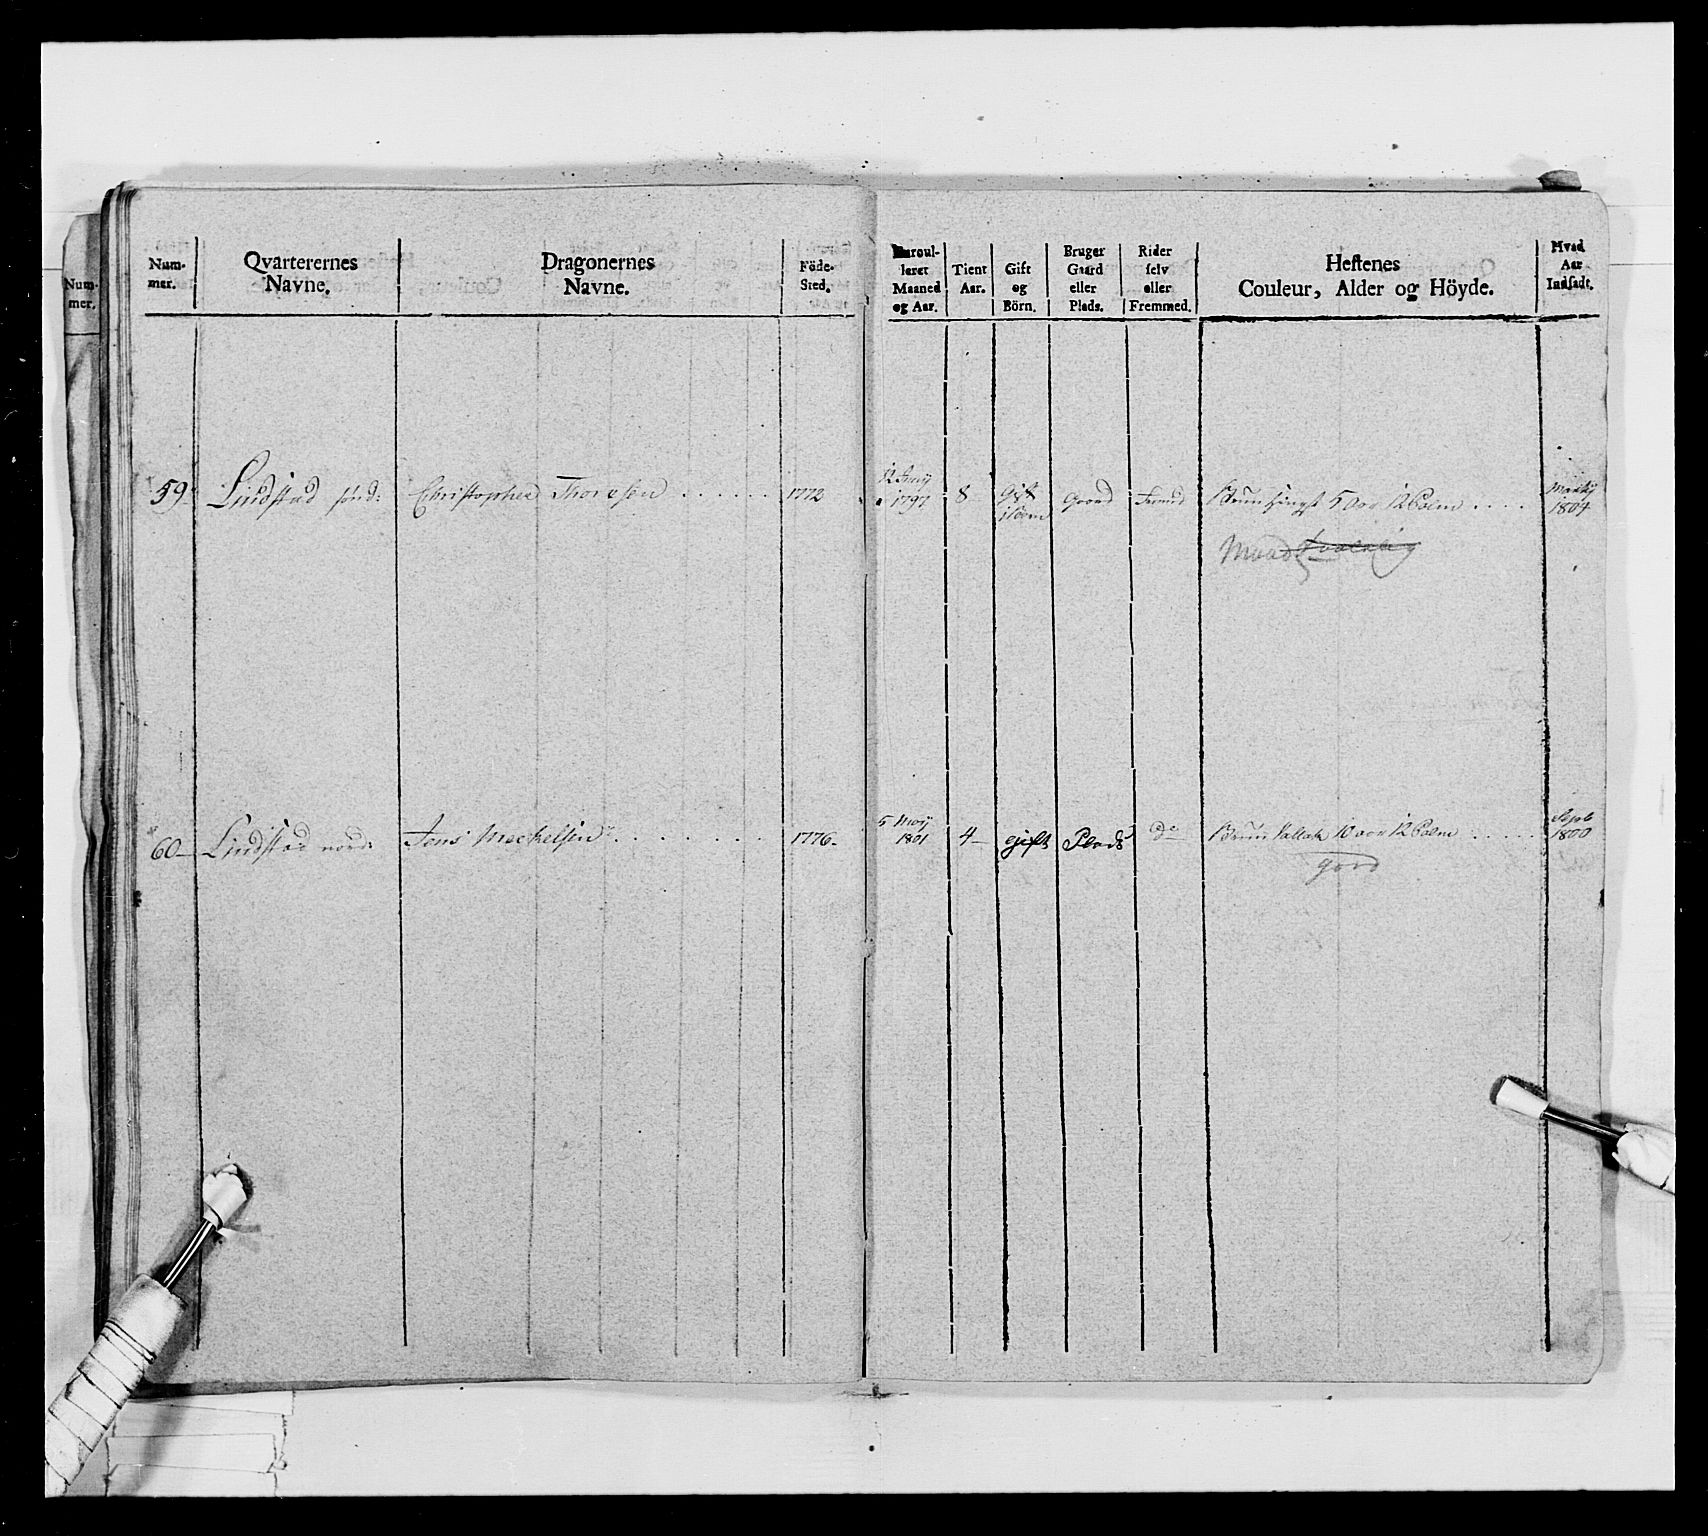 Num-
mer.
Num-
mer.
Qvarterernes
Navne.
Dragonernes
Navne.
Föde-
Sted.
Enroul-
leret
Maaned
og Aar.
Tient
Aar.
Gift
og
Börn.
Bruger
Gaard
eller
Plads.
Rider
selv
eller
Fremmed.
Hestenes
Couleur, Alder og Höyde.
Hvad
Aar
Indsadt.
59. Lindstad sönd: Christopher Thoresen . . . . . . 1772 12 Junÿ 1797 8 Gift 1 barn Gaard Fremd Bruun Hingst 5 aar 12 Palm . . . . 1804
60 - Lindstad nord: Jens Meckelsen . . . . . . 1776. 5 Maÿ 1801 4 - gift Plads do Bruun Vallak 10 aar 12 Palm . . . . . Sept 1800
god